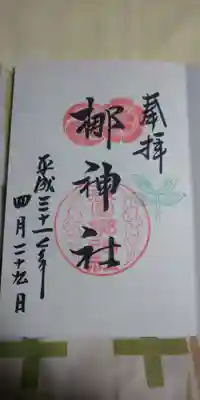 奉拝
梛神社
平成三十一年
四月二十九日